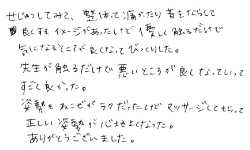 せじゅつしてみて、整体って痛かったり音をならして
良くするイメージがあったけど優しく触るだけで
気になるところが良くなってびっくりした。
先生が触るだけで悪いところが良くなっていって
すごく良かった。
姿勢もねこぜがラクだったけどマッサージしてもらって
正しい姿勢が心ちよくなった。
ありがとうございました。